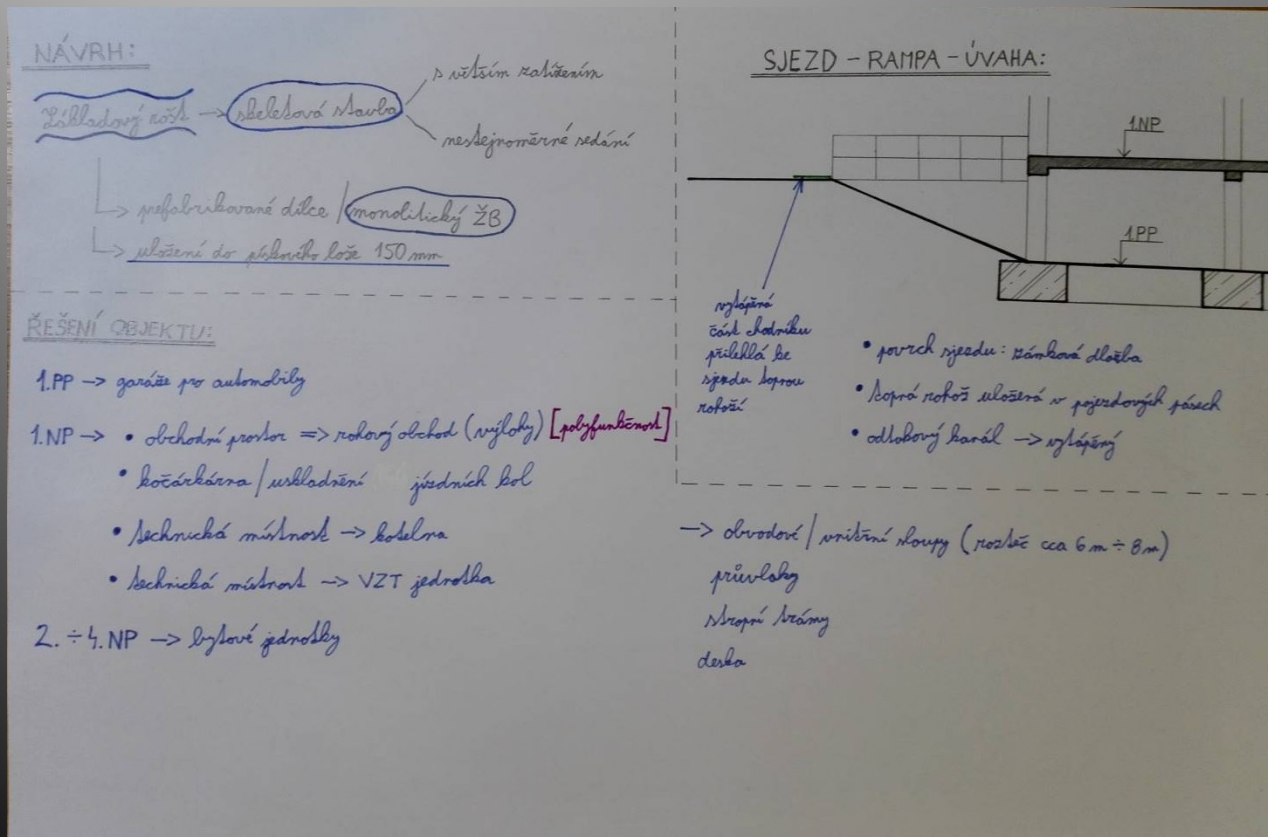 NÁVRH:
Základový rošt → skeletová stavba
s větším zatížením
nestejnoměrné sedání
→ prefabrikované dílce / monolitický ŽB
→ uložení do pískového lože 150 mm
ŘEŠENÍ OBJEKTU:
1.PP → garáže pro automobily
1.NP → • obchodní prostor => rohový obchod (výlohy) [polyfunkčnost]
• kočárkárna / uskladnění jízdních kol
• technická místnost → kotelna
• technická místnost → VZT jednotka
2. ÷ 4. NP → bytové jednotky
SJEZD - RAMPA - ÚVAHA:
1.NP
1.PP
vytápěná
část chodníku
přilehlá ke
sjezdu topnou
rohoží
• povrch sjezdu: zámková dlažba
• topná rohož uložená v pojezdových pásech
• odtokový kanál → vytápěný
→ obvodové / vnitřní sloupy (rozteč cca 6 m ÷ 8 m)
průvlaky
stropní trámy
deska